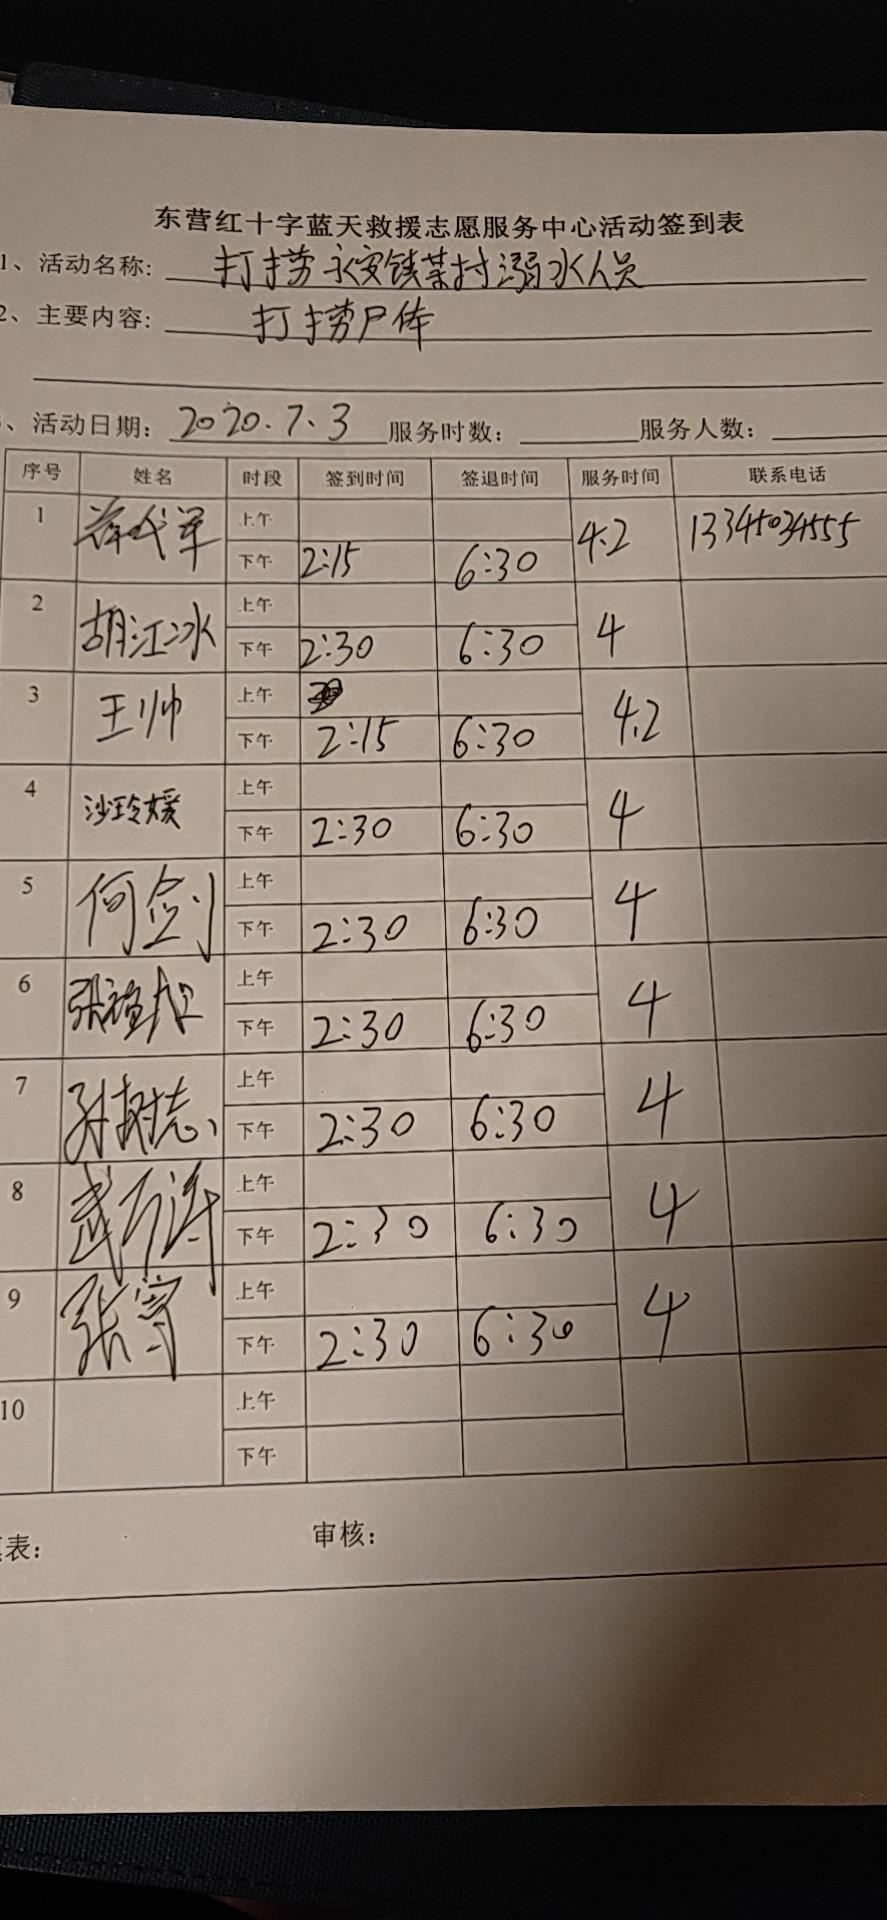 东营红十字蓝天救援志愿服务中心活动签到表
1、活动名称: 打捞永安镇某村溺水人员
2、主要内容: 打捞尸体
、活动日期: 2020.7.3 服务时数: 服务人数:
序号 姓名 时段 签到时间 签退时间 服务时间 联系电话
1 上午
下午 2:15 6:30 4.2 13345034555
2 胡江冰 上午
下午 2:30 6:30 4
3 王帅 上午
下午 2:15 6:30 4.2
4 沙玲媛 上午
下午 2:30 6:30 4
5 何剑 上午
下午 2:30 6:30 4
6 上午
下午 2:30 6:30 4
7 孙树志 上午
下午 2:30 6:30 4
8 上午
下午 2:30 6:30 4
9 上午
下午 2:30 6:30 4
10 上午
下午
表: 审核: